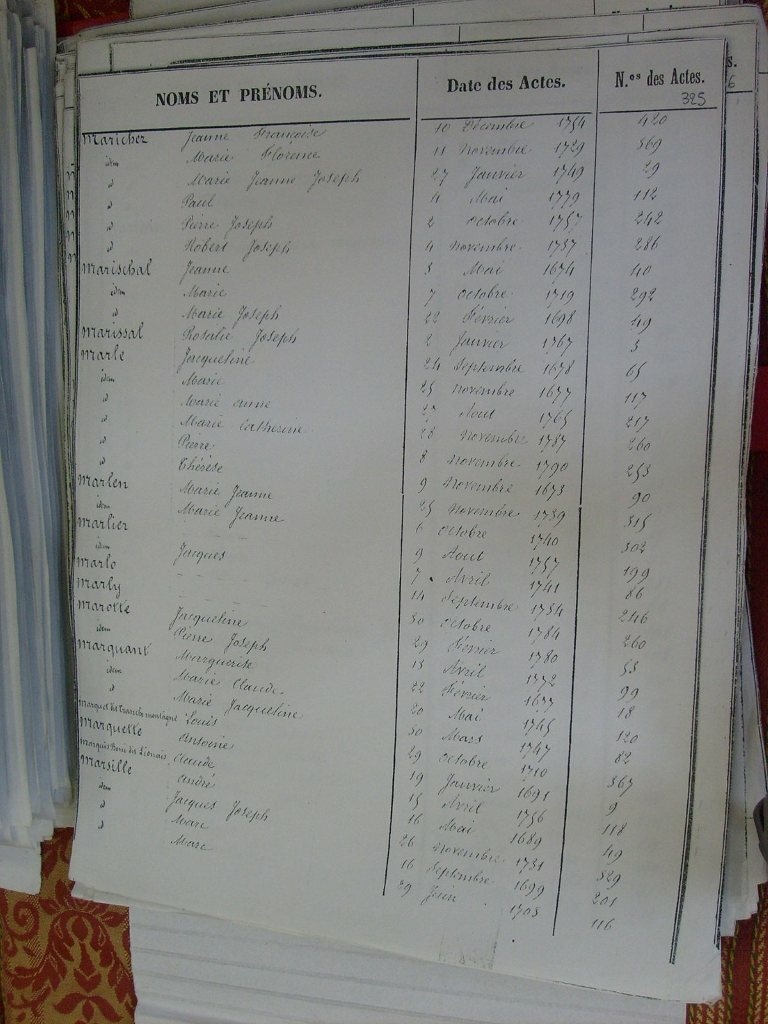 NOMS ET PRÉNOMS. Date des Actes. N.os des Actes.
325
Maricher Jeanne Françoise 10 Décembre 1754 420
idem Marie Florence 11 Novembre 1729 369
d Marie Jeanne Joseph 27 Janvier 1749 29
d Paul 4 Mai 1779 112
d Pierre Joseph 2 Octobre 1757 242
d Robert Joseph 4 Novembre 1737 286
Marischal Jeanne 3 Mai 1674 40
idem Marie 7 Octobre 1719 292
d Marie Joseph 22 Février 1698 49
Marissal Rosalie Joseph 2 Janvier 1767 3
Marle Jacqueline 24 Septembre 1678 65
idem Marie 25 Novembre 1677 117
d Marie Anne 27 Aout 1765 217
d Marie Catherine 28 Novembre 1737 260
d Pierre 8 Novembre 1790 253
d Thérèse 9 Novembre 1673 90
Marlen Marie Jeanne 25 Novembre 1739 315
idem Marie Jeanne 6 Octobre 1740 302
Marlier 9 Aout 1757 199
idem Jacques 7 Avril 1741 86
Marlo 14 Septembre 1754 246
Marly 30 Octobre 1784 260
Marotte Jacqueline 29 Février 1780 53
idem Pierre Joseph 13 Avril 1772 99
Marquant Marguerite 22 Février 1677 18
idem Marie Claude 20 Mai 1745 120
d Marie Jacqueline 30 Mars 1747 82
Marquet dit tranche montagne Louis 29 Octobre 1710 367
Marquette Antoine 19 Janvier 1691 9
Marquis dit Lionnais Claude 15 Avril 1756 118
Marsille André 16 Mai 1689 49
idem Jacques Joseph 26 Novembre 1731 329
d Marc 16 Septembre 1699 201
d Marc 29 Juin 1703 116